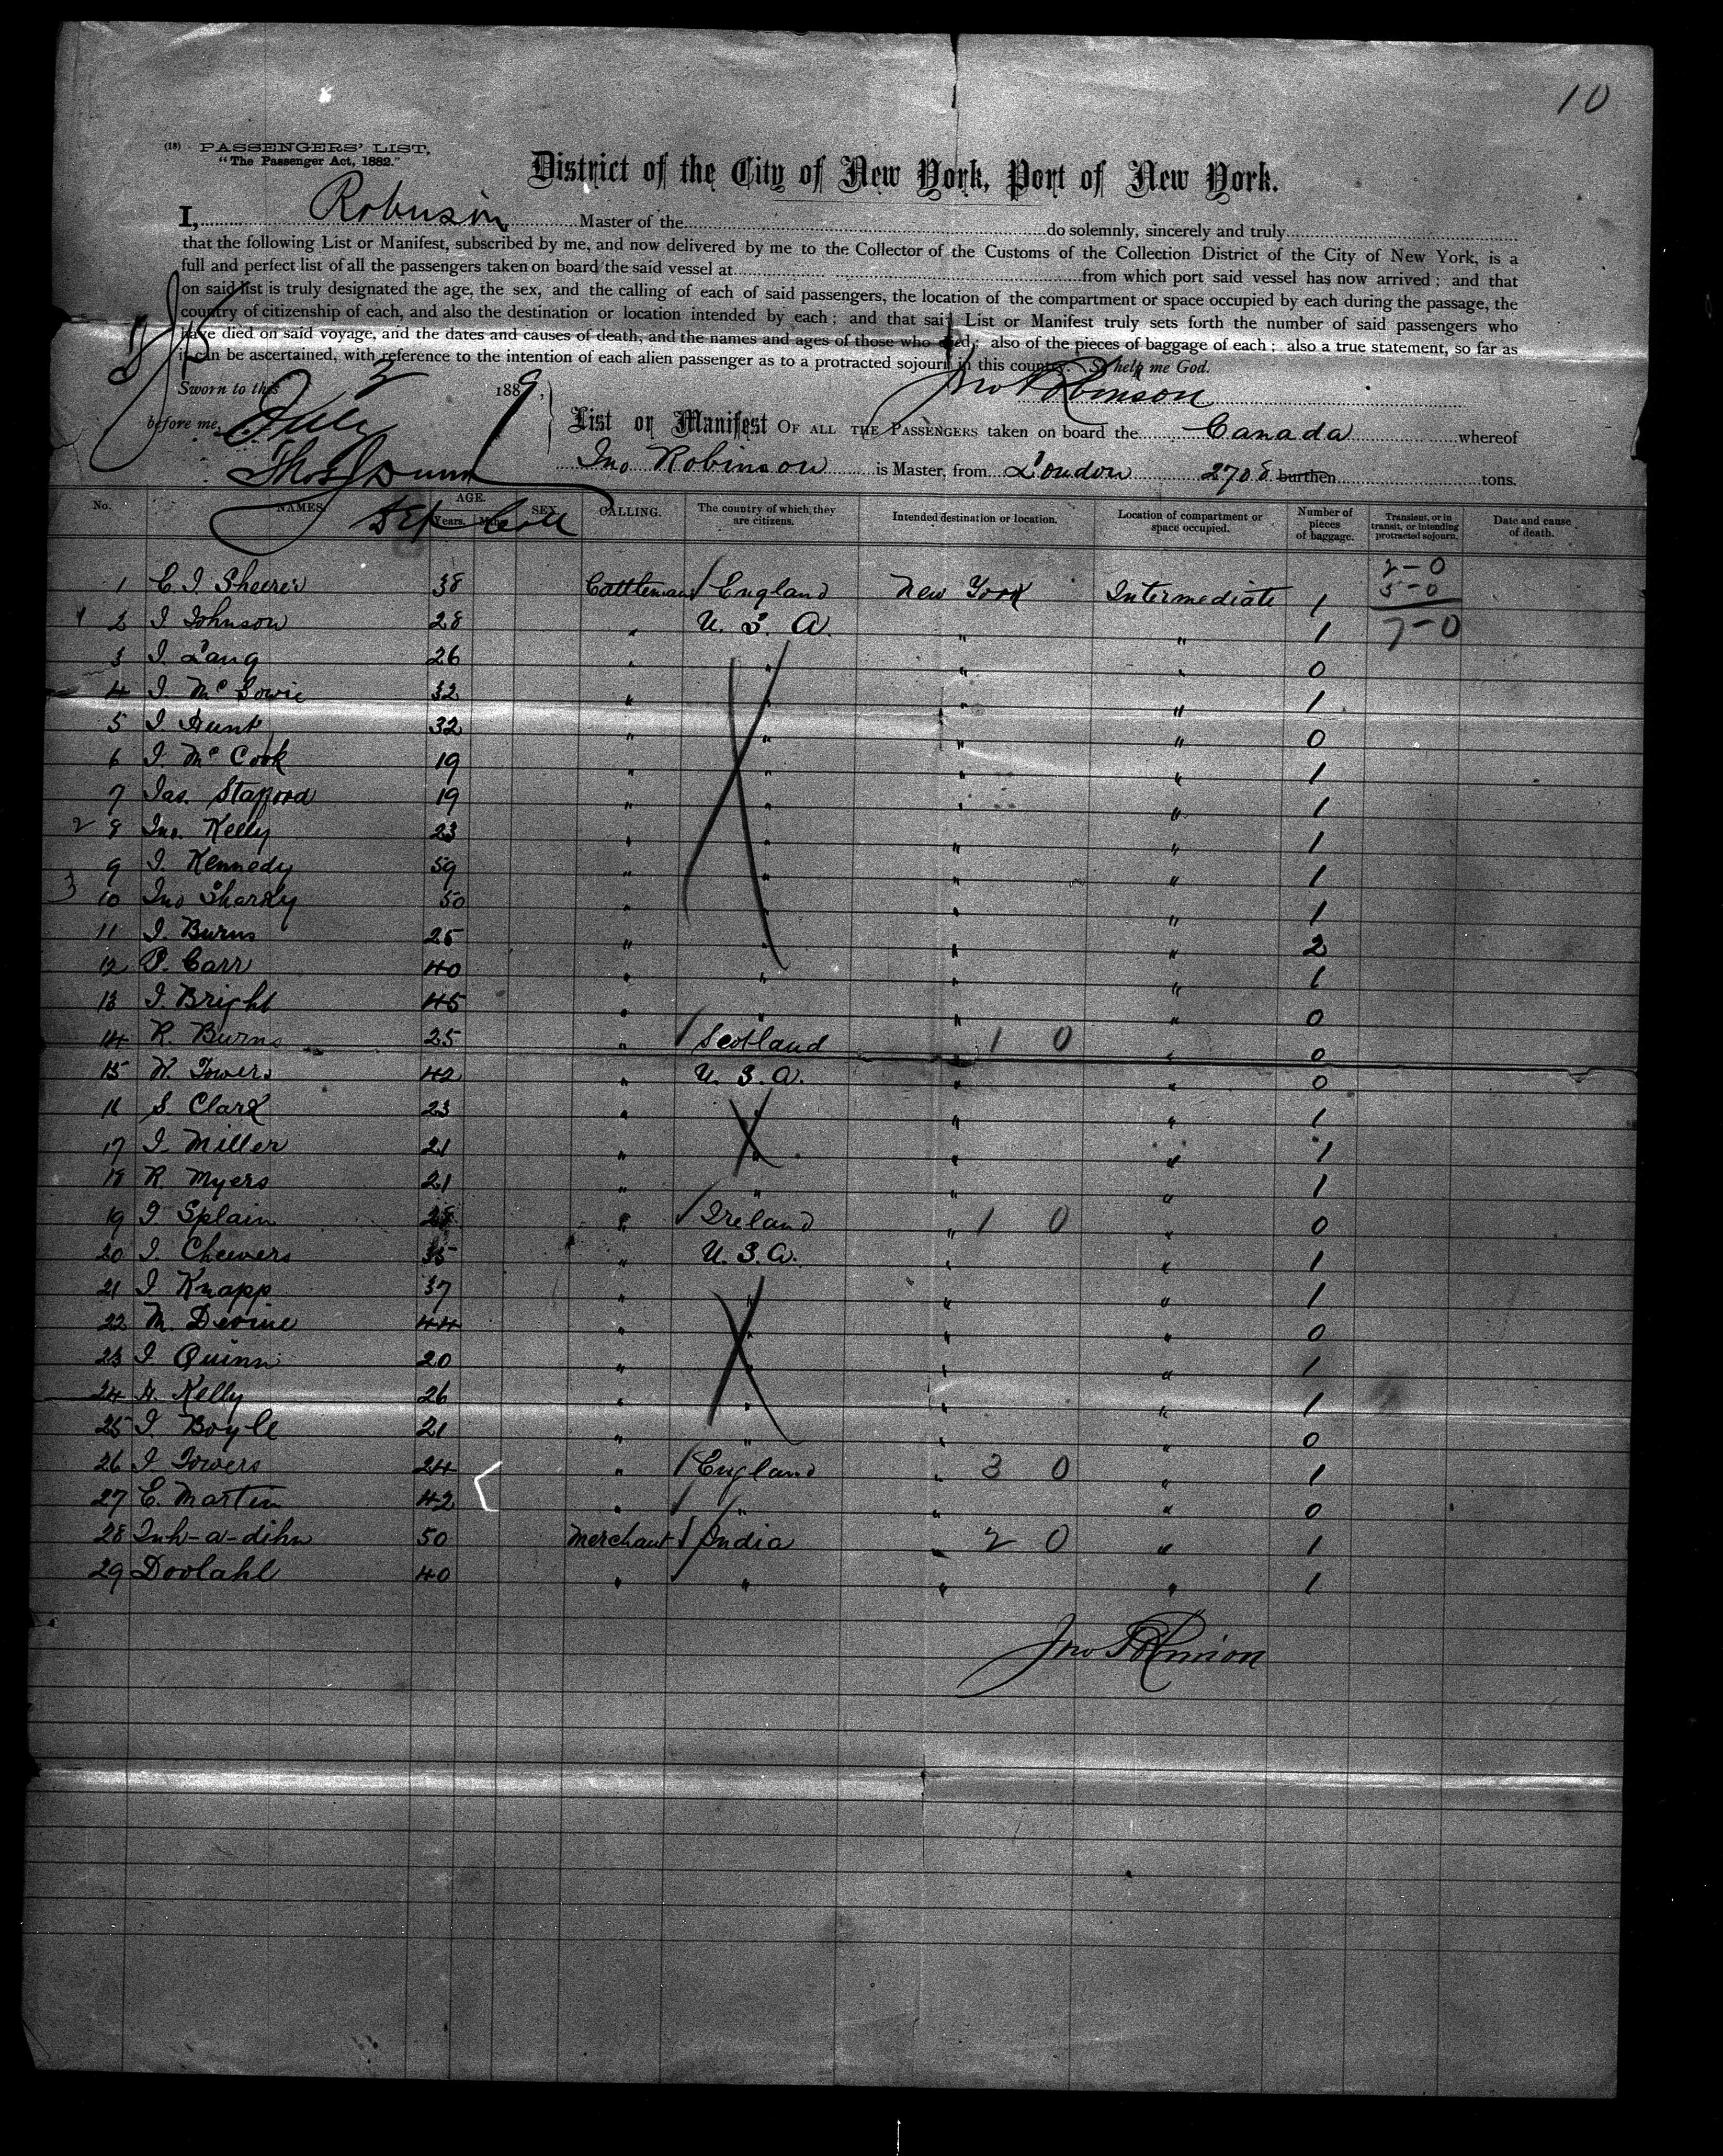 10
(18) PASSENGERS' LIST,
"The Passenger Act, 1882."
District of the City of New York, Port of New York.
I, Robinson Master of the do solemnly, sincerely and truly
that the following List or Manifest, subscribed by me, and now delivered by me to the Collector of the Customs of the Collection District of the City of New York, is a
full and perfect list of all the passengers taken on board the said vessel at from which port said vessel has now arrived; and that
on said list is truly designated the age, the sex, and the calling of each of said passengers, the location of the compartment or space occupied by each during the passage, the
country of citizenship of each, and also the destination or location intended by each; and that said List or Manifest truly sets forth the number of said passengers who
have died on said voyage, and the dates and causes of death, and the names and ages of those who died; also of the pieces of baggage of each; also a true statement, so far as
it can be ascertained, with reference to the intention of each alien passenger as to a protracted sojourn in this country. So help me God.
Sworn to this 2 1889, Jno Robinson
before me, July
List or Manifest OF ALL THE PASSENGERS taken on board the Canada whereof
Jno Robinson is Master, from London 2708 burthen tons.
Thos Dunn
Dep Coll
No. NAMES. AGE. Years. Mths. SEX. CALLING. The country of which they are citizens. Intended destination or location. Location of compartment or space occupied. Number of pieces of baggage. Transient, or in transit, or intending protracted sojourn. Date and cause of death.
2-0
5-0
7-0
1 C. J. Sheerer 38 Cattleman England New York Intermediate 1
2 J Johnson 28 " U. S. A. " " 1
3 J. Lang 26 " " " " 0
4 J. Mc 32 " " " " 1
5 J. Hunt 32 " " " " 0
6 J. Mc Cook 19 " " " " 1
7 Jas. Stafford 19 " " " " 1
8 Jno. Kelly 23 " " " " 1
9 J. Kennedy 59 " " " " 1
10 Jno Sharky 50 " " " " 1
11 J. Burns 25 " " " " 2
12 P. Carr 40 " " " " 1
13 J. Bright 45 " " " " 0
14 R. Burns 25 " Scotland " 1 0 " 0
15 W. Towers 42 " U. S. A. " " 0
16 S. Clark 23 " " " " 1
17 J. Miller 21 " " " " 1
18 R. Myers 21 " " " " 1
19 J Splain 28 " Ireland " 1 0 " 0
20 J. Cheevers 35 " U. S. A. " " 1
21 J Knapp 37 " " " " 1
22 M. Devine 44 " " " " 0
23 J Quinn 20 " " " " 1
24 H. Kelly 26 " " " " 1
25 J. Boyle 21 " " " " 0
26 J Towers 24 " England " 3 0 " 1
27 C. Martin 42 " " " " 0
28 Juh-a-dihn 50 Merchant India " 2 0 " 1
29 Doolahl 40 " " " " 1
Jno Robinson